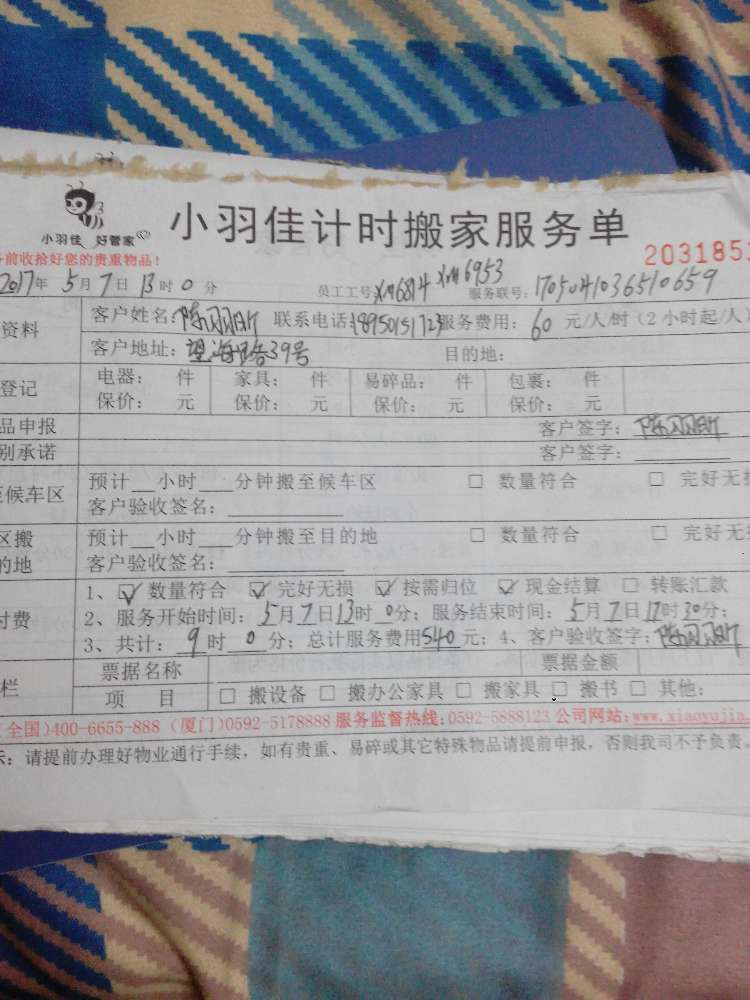 小羽佳 好管家
小羽佳计时搬家服务单
前收拾好您的贵重物品！
2031853
2017年 5月 7日 13时 0分 员工工号 XM6814 XM6953 服务联号：1705041036510659
资料 客户姓名： 联系电话：18950151723 服务费用：60 元/人/时（2小时起/人）
客户地址：望海路39号 目的地：
登记 电器： 件 家具： 件 易碎品： 件 包裹： 件
保价： 元 保价： 元 保价： 元 保价： 元
品申报 客户签字：
别承诺 客户签字：
至候车区 预计 小时 分钟搬至候车区 □ 数量符合 □ 完好无损
客户验收签名：
区搬 预计 小时 分钟搬至目的地 □ 数量符合 □ 完好无
的地 客户验收签名：
付费 1、☑ 数量符合 ☑ 完好无损 ☑ 按需归位 ☑ 现金结算 □ 转账汇款
2、服务开始时间：5月7日13时0分；服务结束时间：5月7日17时30分；
3、共计：9时0分；总计服务费用540元；4、客户验收签字：
栏 票据名称 票据金额
项 目 □ 搬设备 □ 搬办公家具 □ 搬家具 □ 搬书 □ 其他：
（全国）400-6655-888（厦门）0592-5178888 服务监督热线：0592-5888123 公司网站：www.xiaoyujia
示：请提前办理好物业通行手续，如有贵重、易碎或其它特殊物品请提前申报，否则我司不予负责。